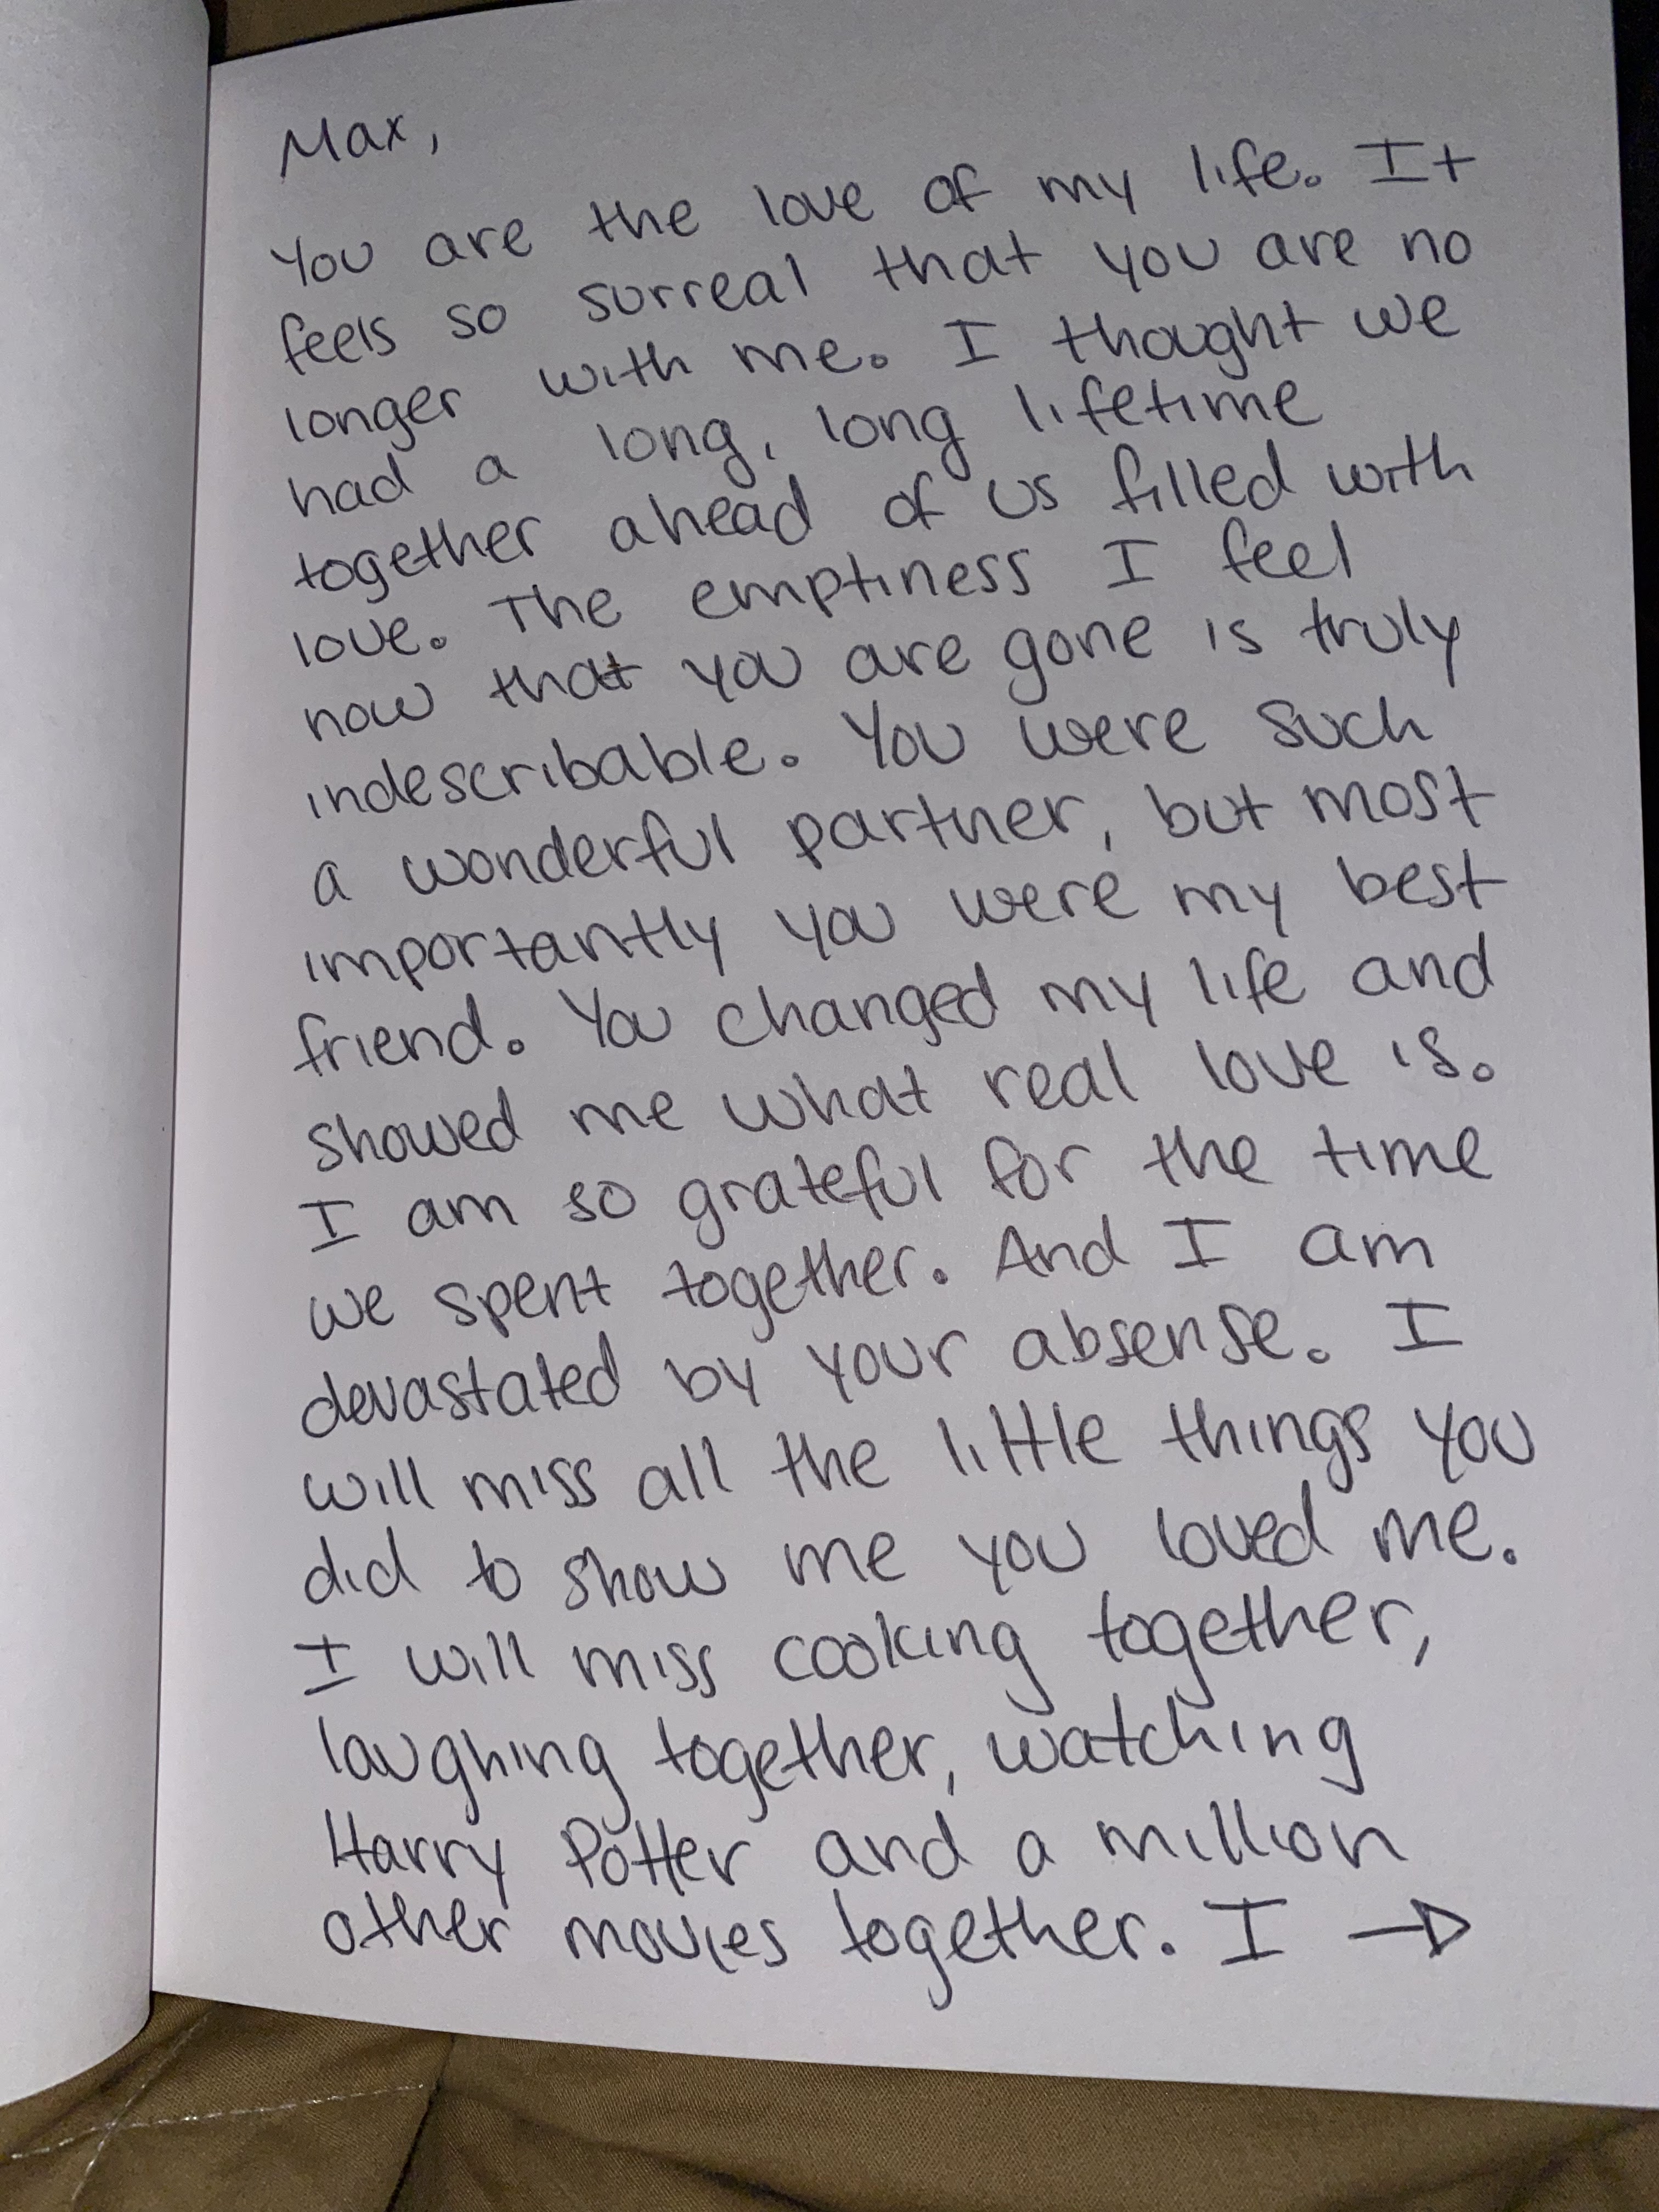 Max,
You are the love of my life. It
feels so surreal that you are no
longer with me. I thought we
had a long, long lifetime
together ahead of us filled with
love. The emptiness I feel
now that you are gone is truly
indescribable. You were such
a wonderful partner, but most
importantly you were my best
friend. You changed my life and
showed me what real love is.
I am so grateful for the time
we spent together. And I am
devastated by your absense. I
will miss all the little things you
did to show me you loved me.
I will miss cooking together,
laughing together, watching
Harry Potter and a million
other movies together. I →